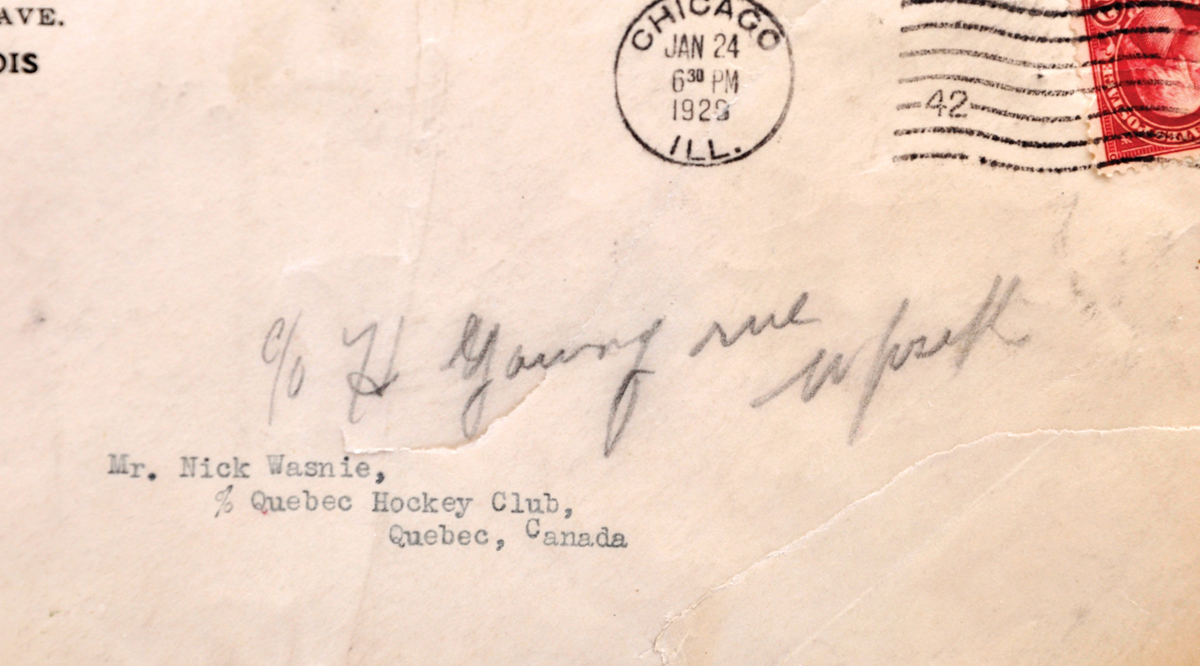 AVE.
OIS
CHICAGO
JAN 24
6 30 PM
1929
ILL.
42
c/o H Young rue
Mr. Nick Wasnie,
% Quebec Hockey Club,
Quebec, Canada